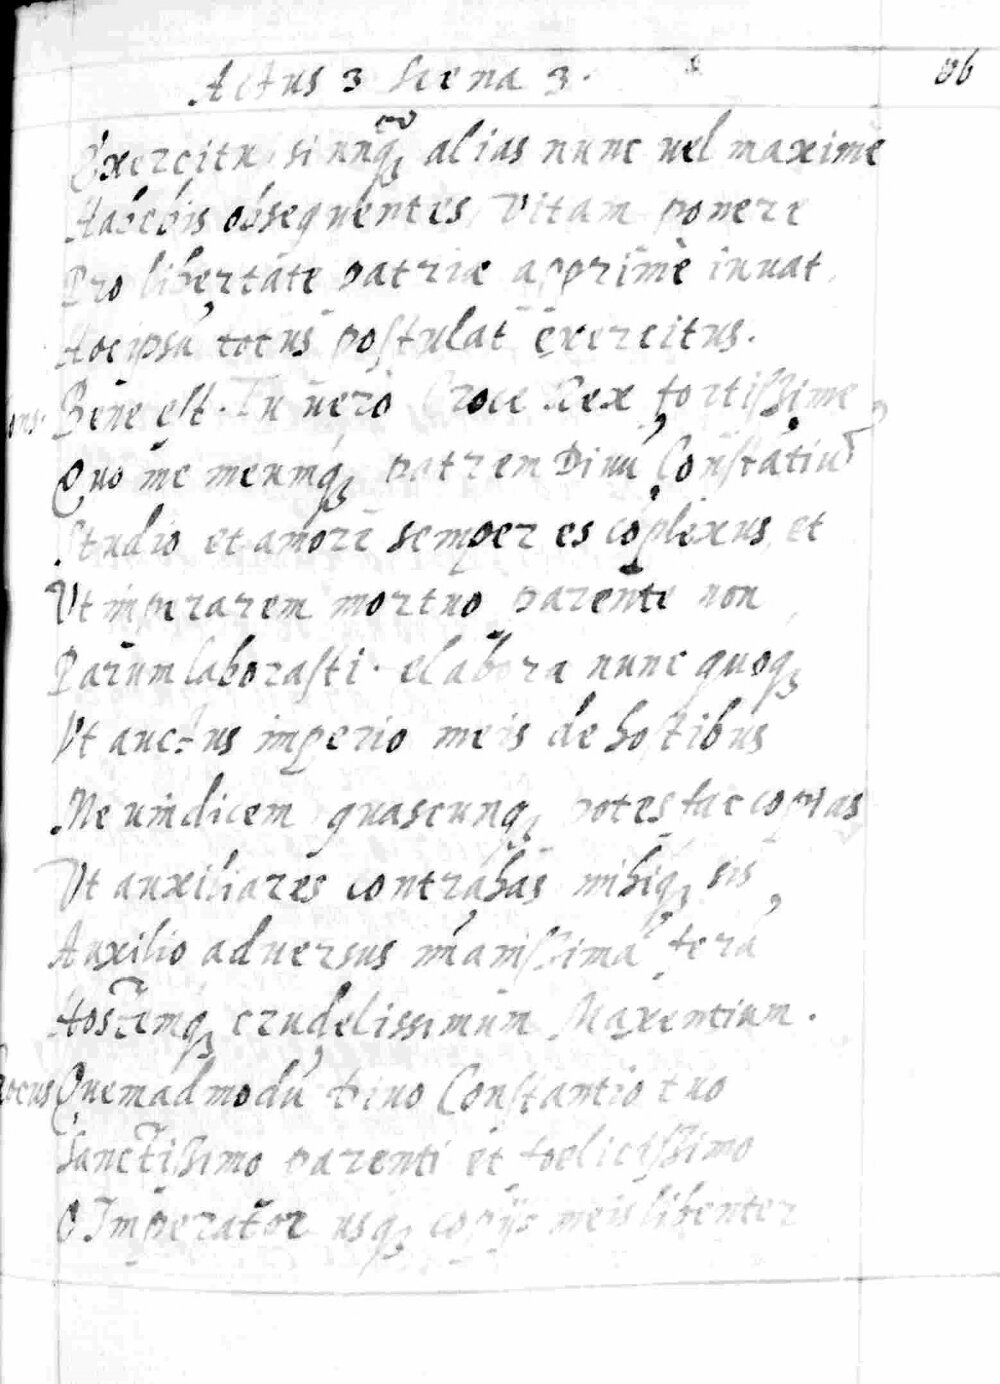 Actus 3 Scena 3. 86
Exercitu, si unq̃ꝫ alias nunc uel maximè
Habebis obsequentes, Vitam ponere
Pro libertate patriæ apprimè iuuat,
Hoc ipsũ totus postulat exercitus.
Cons. Bene est. Tu uerò Croce Rex fortissime
Quo me meumqꝫ patrem Diuũ Constãtiũ
Studio et amore semper es cõplexus, et
Vt imperarem mortuo parente non
Parum laborasti. elabora nunc quoqꝫ
Vt auctus imperio meis de hostibus
Me uindicem quascunqꝫ potes fac copias
Vt auxiliares contrahas mihiqꝫ sis
Auxilio aduersus immanissimã ferã
Hostemqꝫ crudelissimum Maxentium.
Crocus Quemadmodũ Diuo Constantio tuo
Sanctissimo parenti et foelicissimo
O Imperator usqꝫ copijs meis libenter